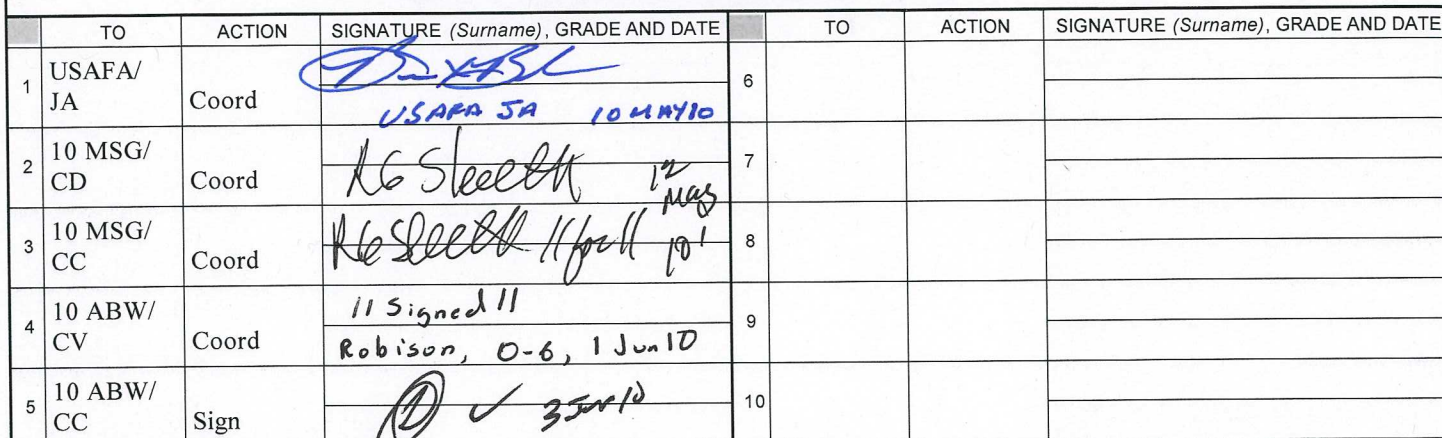 TO ACTION SIGNATURE (Surname), GRADE AND DATE TO ACTION SIGNATURE (Surname), GRADE AND DATE
1 USAFA/ JA Coord USAFA JA 10 MAY 10 6
2 10 MSG/ CD Coord RG Sleeth 12 May 7
3 10 MSG/ CC Coord RG Sleeth //for// 10 8
4 10 ABW/ CV Coord // Signed // Robison, O-6, 1 Jun 10 9
5 10 ABW/ CC Sign 3 Jun 10 10